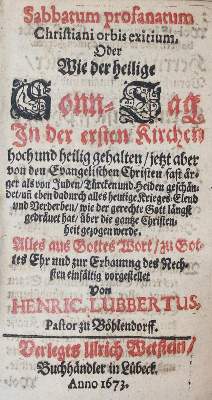 Sabbatum profanatum
Christiani orbis exitium.
Oder
Wie der heilige
Sonn-Tag
In der ersten Kirchen
hoch und heilig gehalten / jetzt aber
von den Evangelischen Christen fast är-
ger als von Juden / Türcken und Heiden geschän-
det / uñ eben dadurch alles heutige Krieges-Elend
und Verderben / wie der gerechte Gott längst
gedräuet hat / über die gantze Christen-
heit gezogen werde.
Alles aus Gottes Wort / zu Got-
tes Ehr und zur Erbauung des Nech-
sten einfältig vorgestellet
Von
HENRIC. LUBBERTUS,
Pastor zu Böhlendorff.
Verlegts Ulrich Wetstein /
Buchhändler in Lübeck.
Anno 1673.